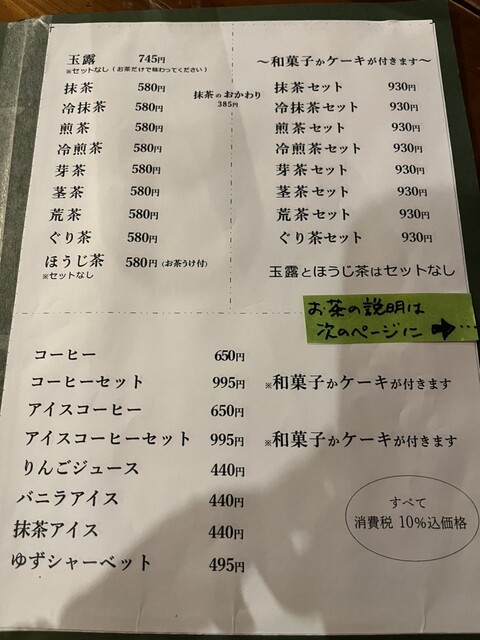 玉露 745円
※セットなし（お茶だけで味わってください）
抹茶 580円
冷抹茶 580円
煎茶 580円
冷煎茶 580円
芽茶 580円
茎茶 580円
荒茶 580円
ぐり茶 580円
ほうじ茶 580円（お茶うけ付）
※セットなし
抹茶のおかわり
385円
～和菓子かケーキが付きます～
抹茶セット 930円
冷抹茶セット 930円
煎茶セット 930円
冷煎茶セット 930円
芽茶セット 930円
茎茶セット 930円
荒茶セット 930円
ぐり茶セット 930円
玉露とほうじ茶はセットなし
お茶の説明は
次のページに ➡…
コーヒー 650円
コーヒーセット 995円 ※和菓子かケーキが付きます
アイスコーヒー 650円
アイスコーヒーセット 995円 ※和菓子かケーキが付きます
りんごジュース 440円
バニラアイス 440円
抹茶アイス 440円
ゆずシャーベット 495円
すべて
消費税 10％込価格